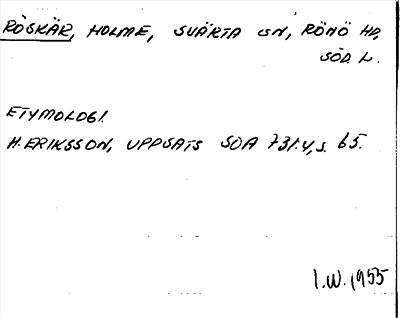 RÖSKÄR, HOLME, SVÄRTA SN, RÖNÖ HD,
SÖD L.
ETYMOLOGI.
H. ERIKSSON, UPPSATS SOA 731:4, S. 65.
I.W. 1955